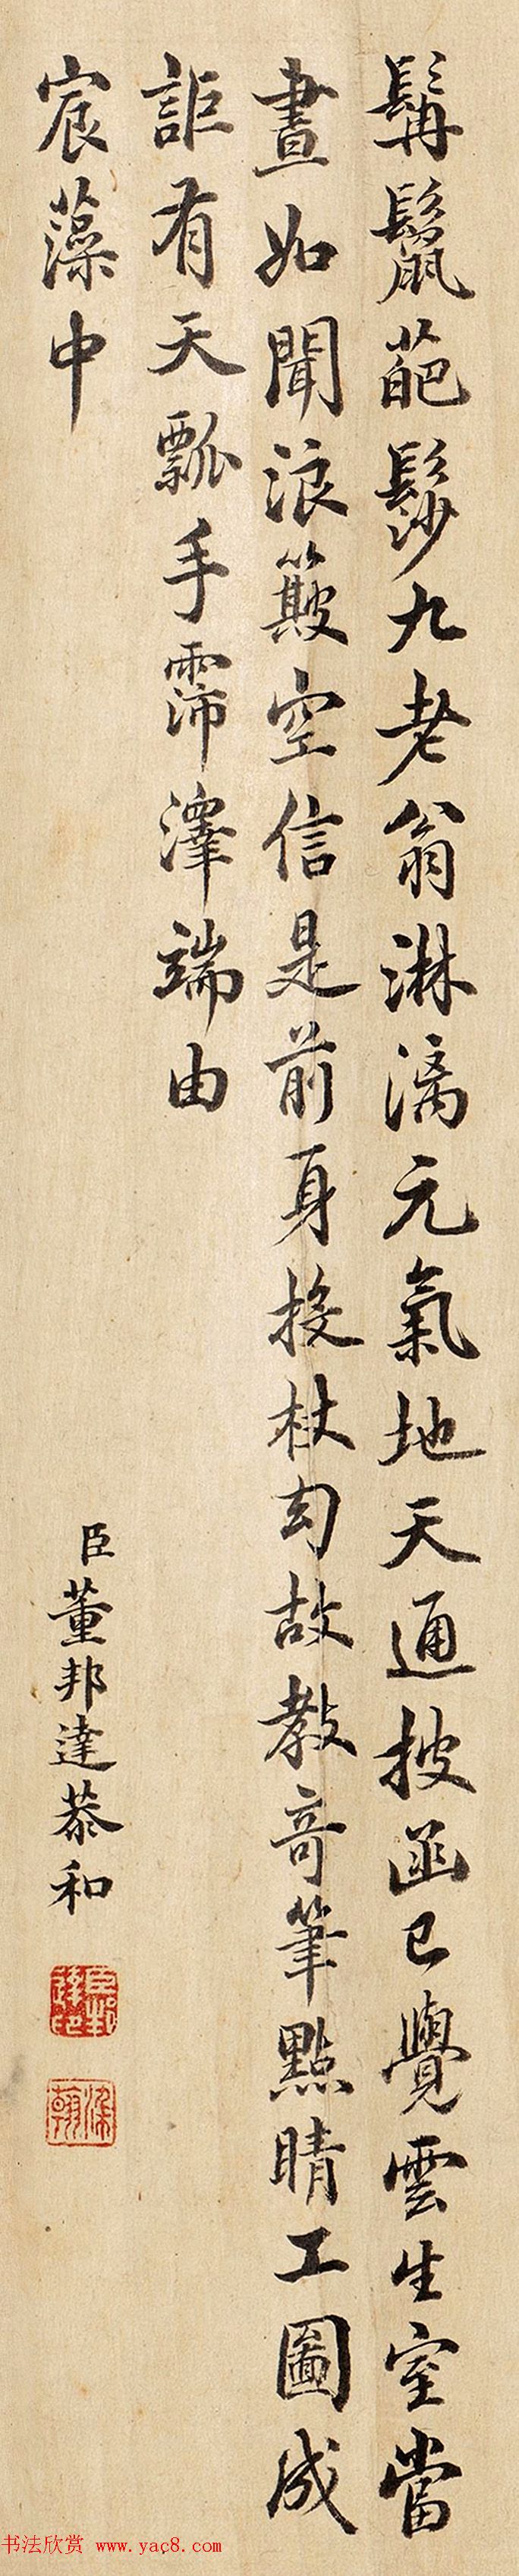 髯鬣葩髿九老翁淋漓元氣地天通披函已覺雲生室當
晝如聞浪簸空信是前身投杖幻故教奇筆點睛工圖成
詎有天瓢手霈澤端由
宸藻中
臣董邦達恭和
臣邦達印
染翰
书法欣赏 www.yac8.com